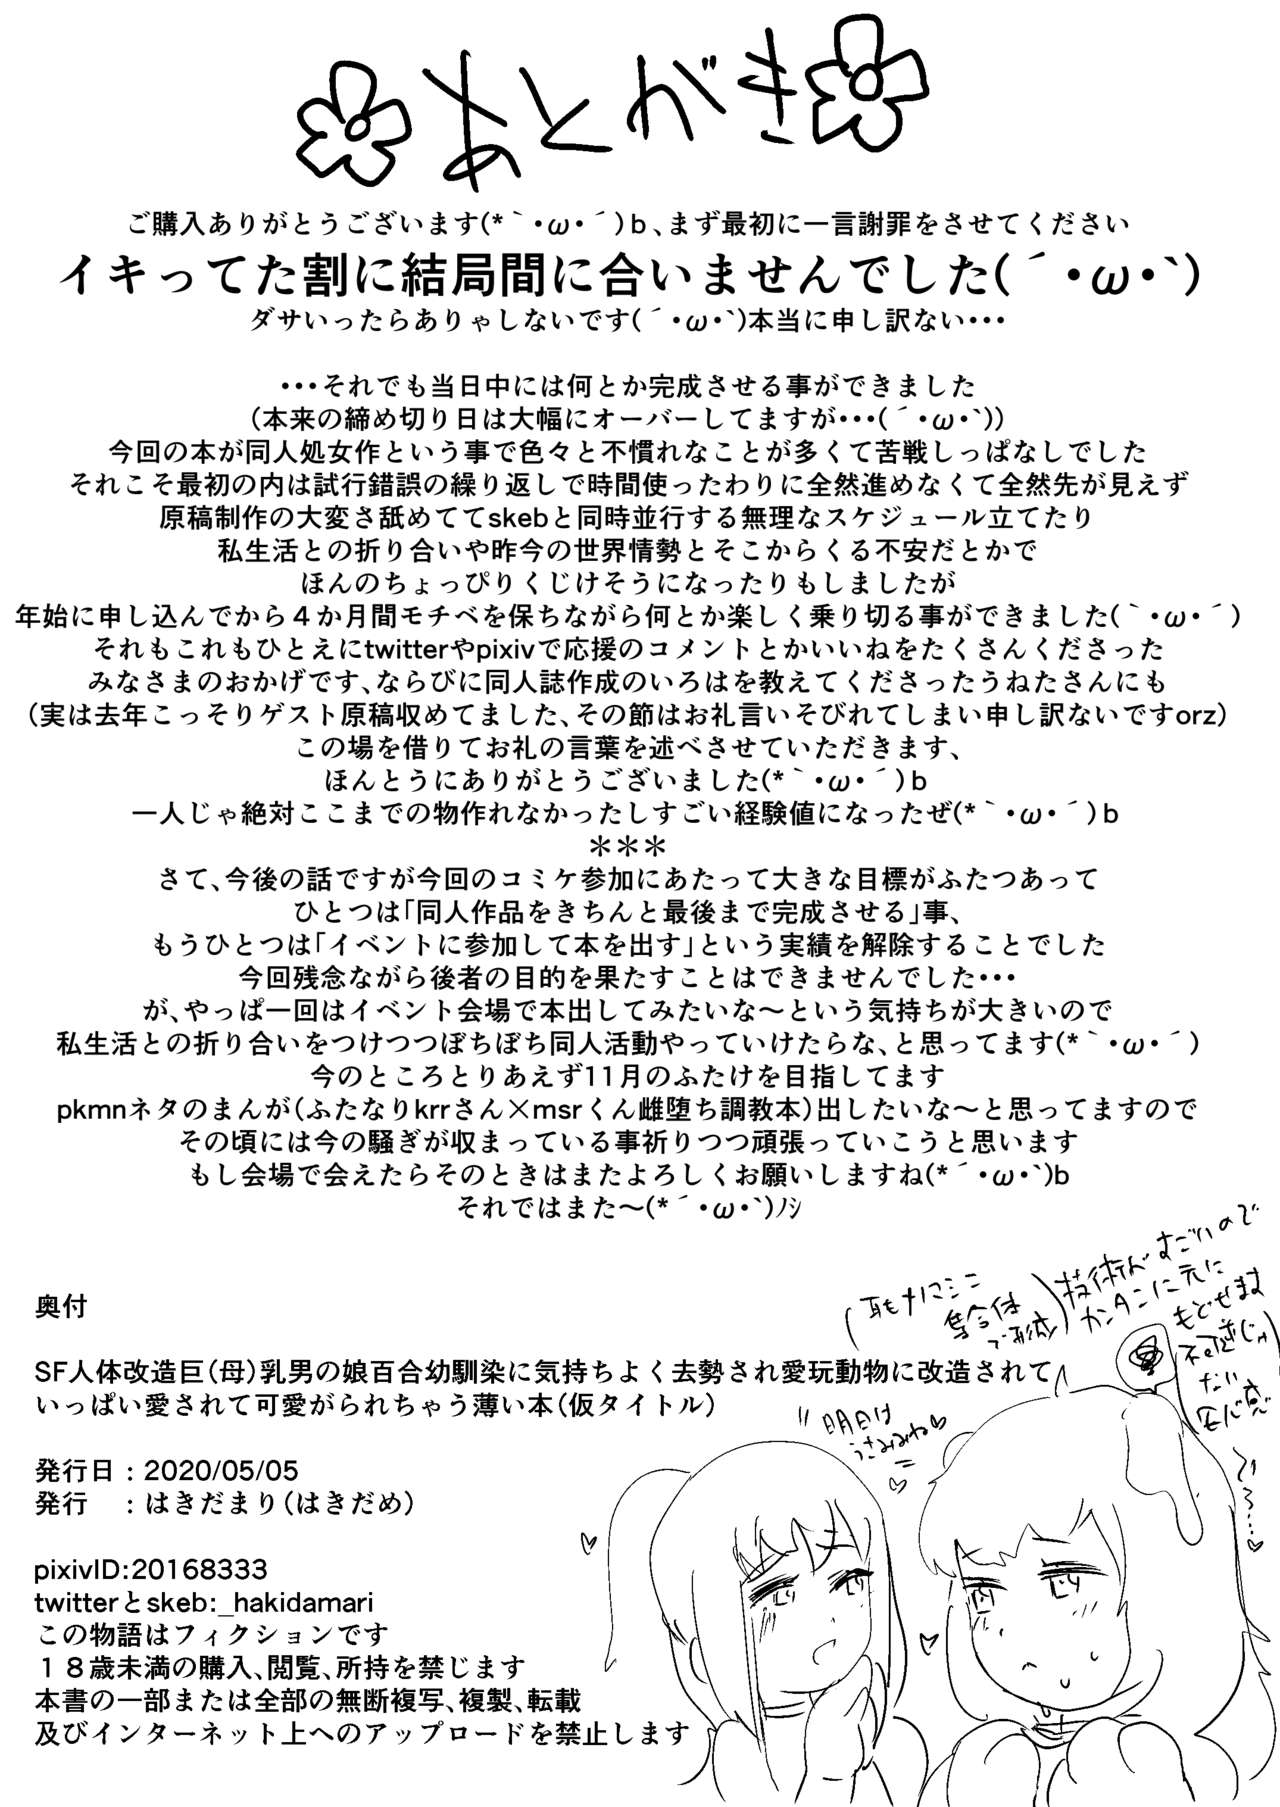 あとがき
ご購入ありがとうございます(*｀・ω・´)b、まず最初に一言謝罪をさせてください
イキってた割に結局間に合いませんでした(´・ω・`)
ダサいったらありゃしないです(´・ω・`)本当に申し訳ない・・・
・・・それでも当日中には何とか完成させる事ができました
（本来の締め切り日は大幅にオーバーしてますが・・・(´・ω・`)）
今回の本が同人処女作という事で色々と不慣れなことが多くて苦戦しっぱなしでした
それこそ最初の内は試行錯誤の繰り返しで時間使ったわりに全然進めなくて全然先が見えず
原稿制作の大変さ舐めててskebと同時並行する無理なスケジュール立てたり
私生活との折り合いや昨今の世界情勢とそこからくる不安だとかで
ほんのちょっぴりくじけそうになったりもしましたが
年始に申し込んでから４か月間モチベを保ちながら何とか楽しく乗り切る事ができました(｀・ω・´)
それもこれもひとえにtwitterやpixivで応援のコメントとかいいねをたくさんくださった
みなさまのおかげです、ならびに同人誌作成のいろはを教えてくださったうねたさんにも
（実は去年こっそりゲスト原稿収めてました、その節はお礼言いそびれてしまい申し訳ないですorz）
この場を借りてお礼の言葉を述べさせていただきます、
ほんとうにありがとうございました(*｀・ω・´)b
一人じゃ絶対ここまでの物作れなかったしすごい経験値になったぜ(*｀・ω・´)b
＊＊＊
さて、今後の話ですが今回のコミケ参加にあたって大きな目標がふたつあって
ひとつは「同人作品をきちんと最後まで完成させる」事、
もうひとつは「イベントに参加して本を出す」という実績を解除することでした
今回残念ながら後者の目的を果たすことはできませんでした・・・
が、やっぱ一回はイベント会場で本出してみたいな〜という気持ちが大きいので
私生活との折り合いをつけつつぼちぼち同人活動やっていけたらな、と思ってます(*｀・ω・´)
今のところとりあえず11月のふたけを目指してます
pkmnネタのまんが（ふたなりkrrさん×msrくん雌堕ち調教本）出したいな〜と思ってますので
その頃には今の騒ぎが収まっている事祈りつつ頑張っていこうと思います
もし会場で会えたらそのときはまたよろしくお願いしますね(*´・ω・`)b
それではまた〜(*´・ω・`)ﾉｼ
奥付
SF人体改造巨（母）乳男の娘百合幼馴染に気持ちよく去勢され愛玩動物に改造されて
いっぱい愛されて可愛がられちゃう薄い本（仮タイトル）
発行日：2020/05/05
発行　：はきだまり（はきだめ）
pixivID:20168333
twitterとskeb:_hakidamari
この物語はフィクションです
１８歳未満の購入、閲覧、所持を禁じます
本書の一部または全部の無断複写、複製、転載
及びインターネット上へのアップロードを禁止します
（耳もナノマシン
集合体
技術がすごいので
カンタンに元に
もどせます
明日は
うさみみね♡